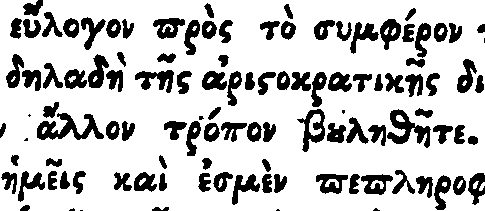 εὔλογον πρὸς τὸ συμφέρον
δηλαδὴ τῆς ἀριστοκρατικῆς δι
ἄλλον τρόπον βουληθῆτε.
ἡμεῖς καὶ ἐσμὲν πεπληροφ